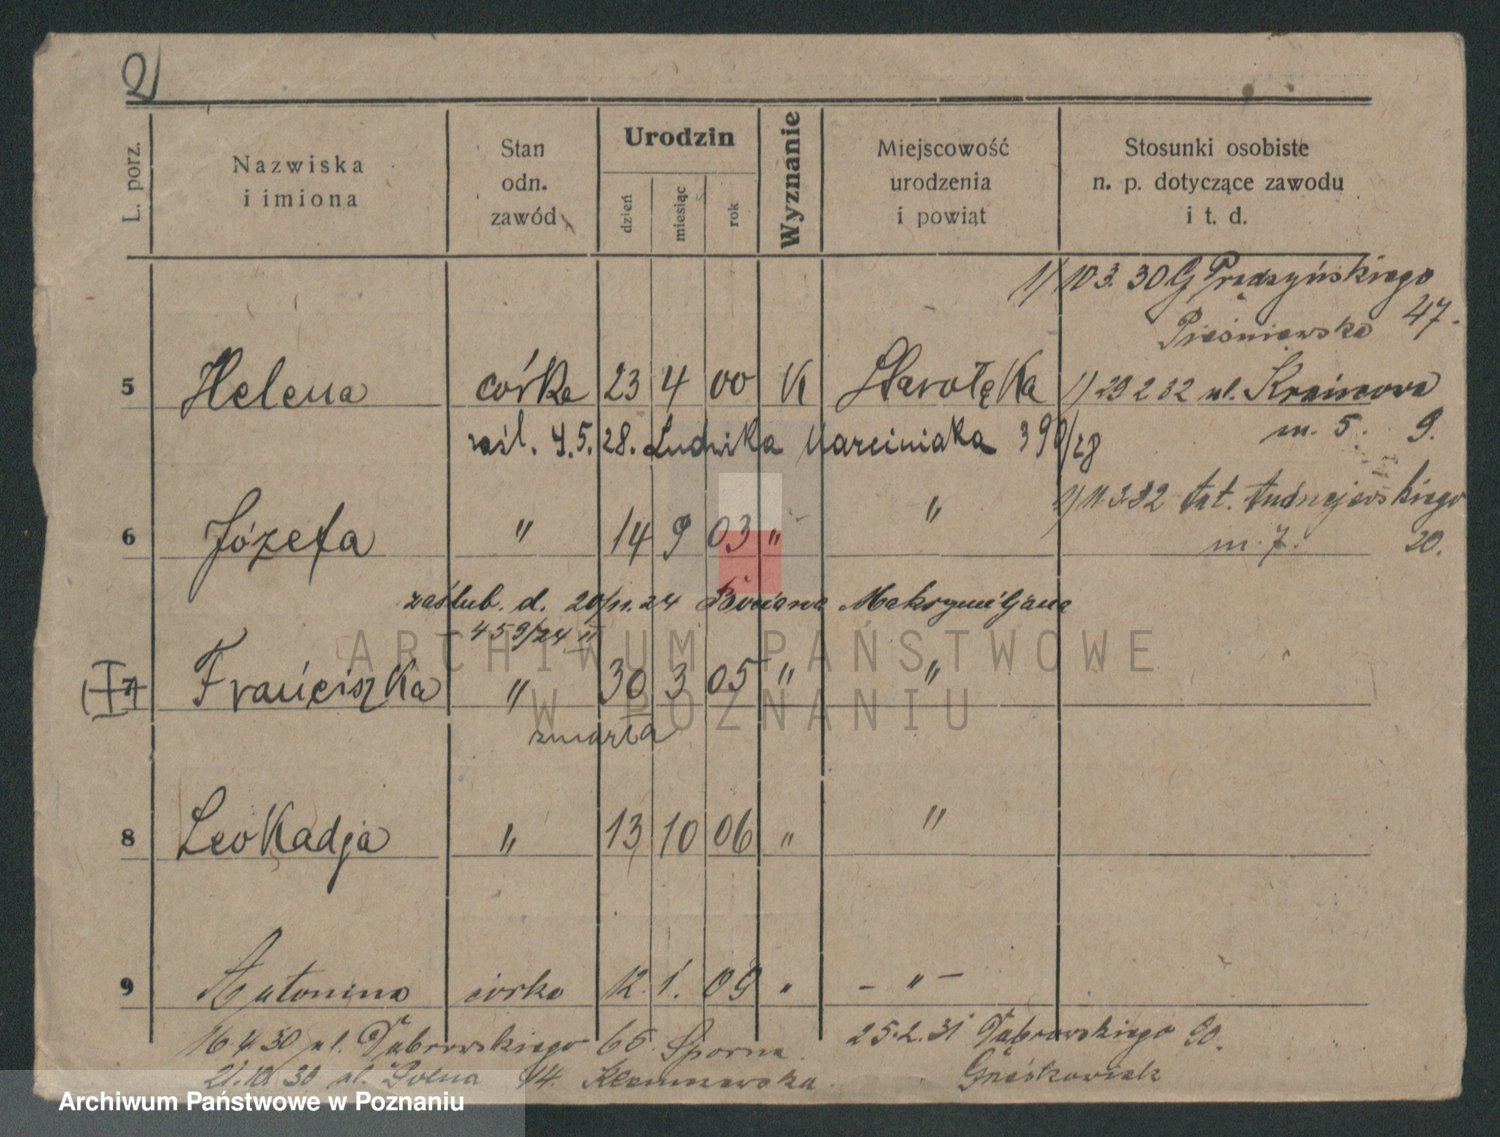 2)
L. porz. Nazwiska i imiona Stan odn. zawód Urodzin dzień miesiąc rok Wyznanie Miejscowość urodzenia i powiat Stosunki osobiste n. p. dotyczące zawodu i t. d.
1/ 10 3. 30 G Prądzyńskiego
47.
5 Helena córka 23 4 00 K Starołęka 1) 29 2 32 ul. Krańcowa
m. 5. 9.
zaśl. 4.5.28. Ludwika Marciniaka 390/28
1/ 11 3 32
6 Józefa " 14 9 03 " "
m. 7. 20.
zaślub. d. 20/11.24 Maksymiljana
459/24 II
7 Franciszka " 30 3 05 " "
zmarła
8 Leokadja " 13 10 06 " "
9 Antonina córka 12. 1. 09 " - " -
16 4 30 ul. Dąbrowskiego 65 Sporna
25.2.31 Dąbrowskiego 90.
30 ul. 14.
Grześkowiak
ARCHIWUM PAŃSTWOWE
W POZNANIU
Archiwum Państwowe w Poznaniu